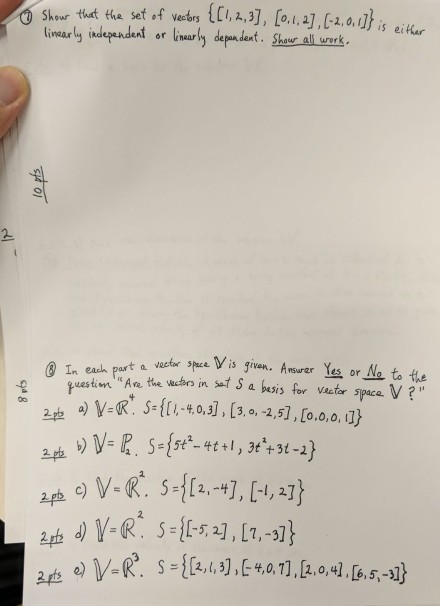 ⑦ Show that the set of vectors {[1,2,3], [0,1,2], [-2,0,1]} is either
linearly independent or linearly dependent. Show all work.
10 pts
2
⑧ In each part a vector space V is given. Answer Yes or No to the
question "Are the vectors in set S a basis for vector space V?"
8 pts
2 pts a) V=ℝ⁴. S={[1,-4,0,3], [3,0,-2,5], [0,0,0,1]}
2 pts b) V=P₂. S={5t²-4t+1, 3t²+3t-2}
2 pts c) V=ℝ². S={[2,-4], [-1,2]}
2 pts d) V=ℝ². S={[-5,2], [7,-3]}
2 pts e) V=ℝ³. S={[2,1,3], [-4,0,7], [2,0,4], [6,5,-3]}